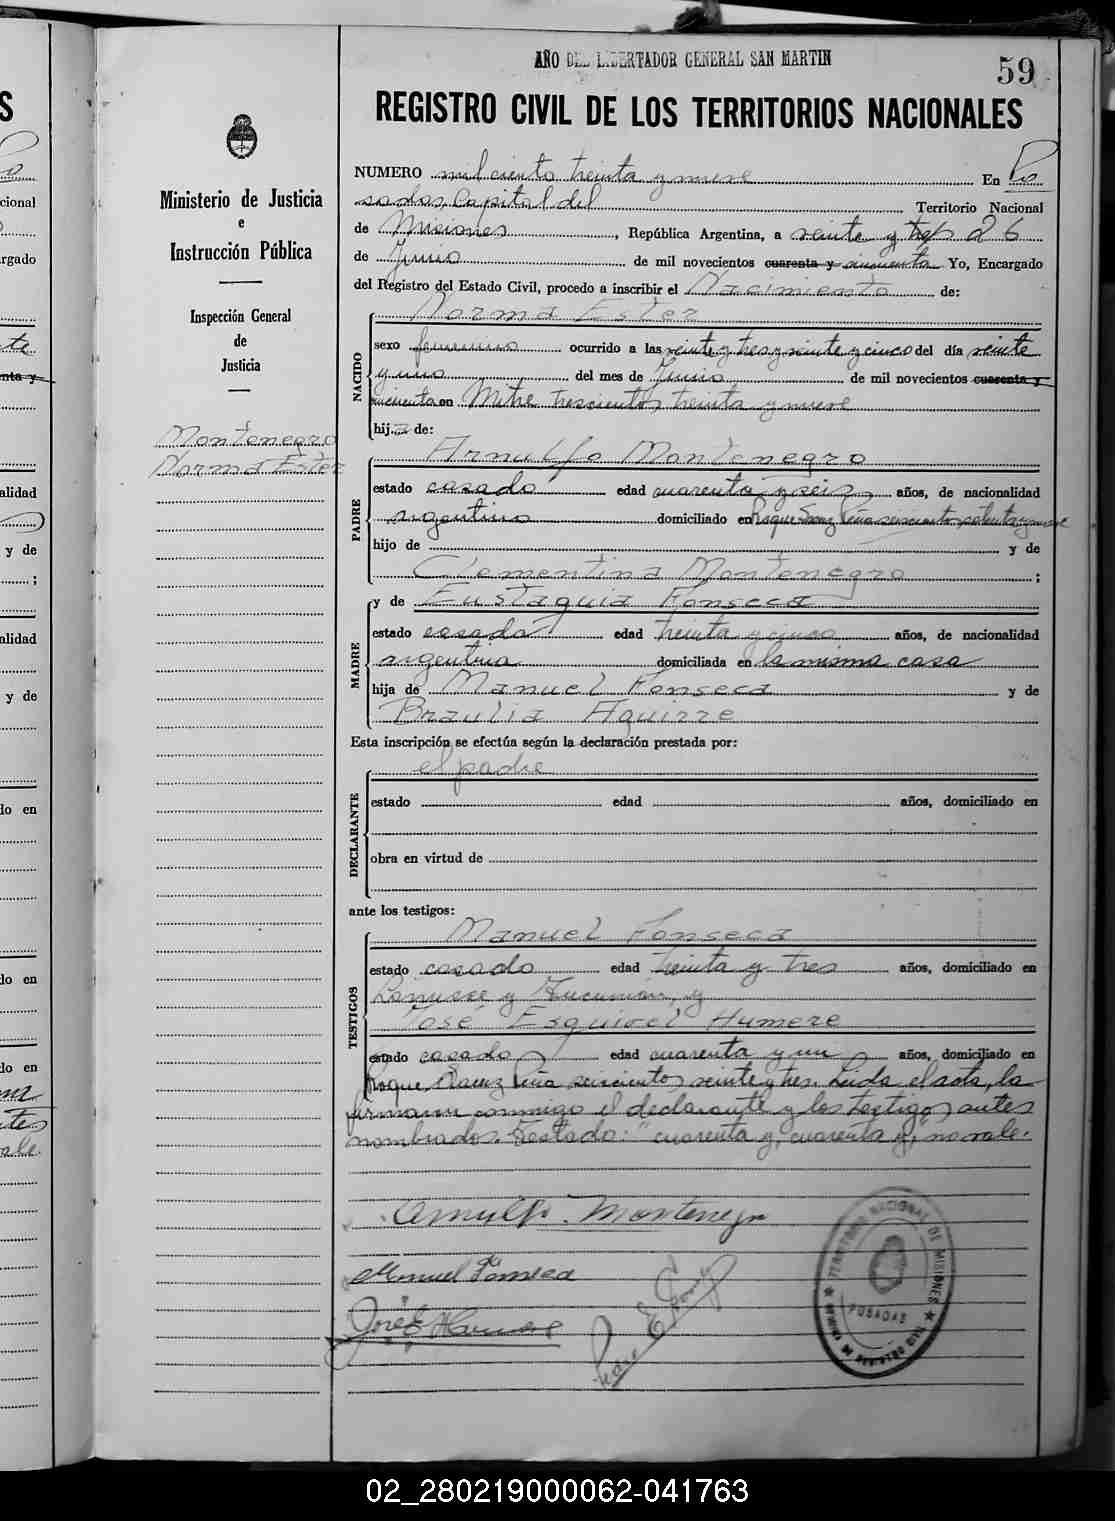 AÑO DEL LIBERTADOR GENERAL SAN MARTIN
59
REGISTRO CIVIL DE LOS TERRITORIOS NACIONALES
Ministerio de Justicia
e
Instrucción Pública
Inspección General
de
Justicia
Montenegro
Norma Ester
NUMERO mil ciento treinta y nueve En Po
sadas, Capital del Territorio Nacional
de Misiones, República Argentina, a veinte y tres 26
de Junio de mil novecientos cuarenta y cincuenta Yo, Encargado
del Registro del Estado Civil, procedo a inscribir el Nacimiento de:
NACIDO
Norma Ester
sexo femenino ocurrido a las veinte y tres y veinte y cinco del día veinte
y uno del mes de Junio de mil novecientos cuarenta y
cincuenta en Mitre trescientos treinta y nueve
hija de:
PADRE
Arnulfo Montenegro
estado casado edad cuarenta y seis años, de nacionalidad
argentino domiciliado en Roque Saenz Peña seiscientos y nueve
hijo de y de
Clementina Montenegro;
MADRE
y de Eustaquia Fonseca
estado casada edad treinta y cinco años, de nacionalidad
argentina domiciliada en la misma casa
hija de Manuel Fonseca y de
Braulia Aguirre
Esta inscripción se efectúa según la declaración prestada por:
DECLARANTE
el padre
estado edad años, domiciliado en
obra en virtud de
ante los testigos:
TESTIGOS
Manuel Fonseca
estado casado edad treinta y tres años, domiciliado en
y Tucumán, y
José Esquivel Humere
estado casado edad cuarenta y un años, domiciliado en
Roque Saenz Peña seiscientos veinte y tres. Leida el acta, la
firmaron conmigo el declarante y los testigos antes
nombrados. Testado: "cuarenta y, cuarenta y," no vale.
Arnulfo Montenegro
Manuel Fonseca
José E Humere
Pedro E
TERRITORIO NACIONAL DE MISIONES
POSADAS
S
cional
rgado
nta y
alidad
y de
;
alidad
y de
do en
do en
do en
vale.
02_280219000062-041763